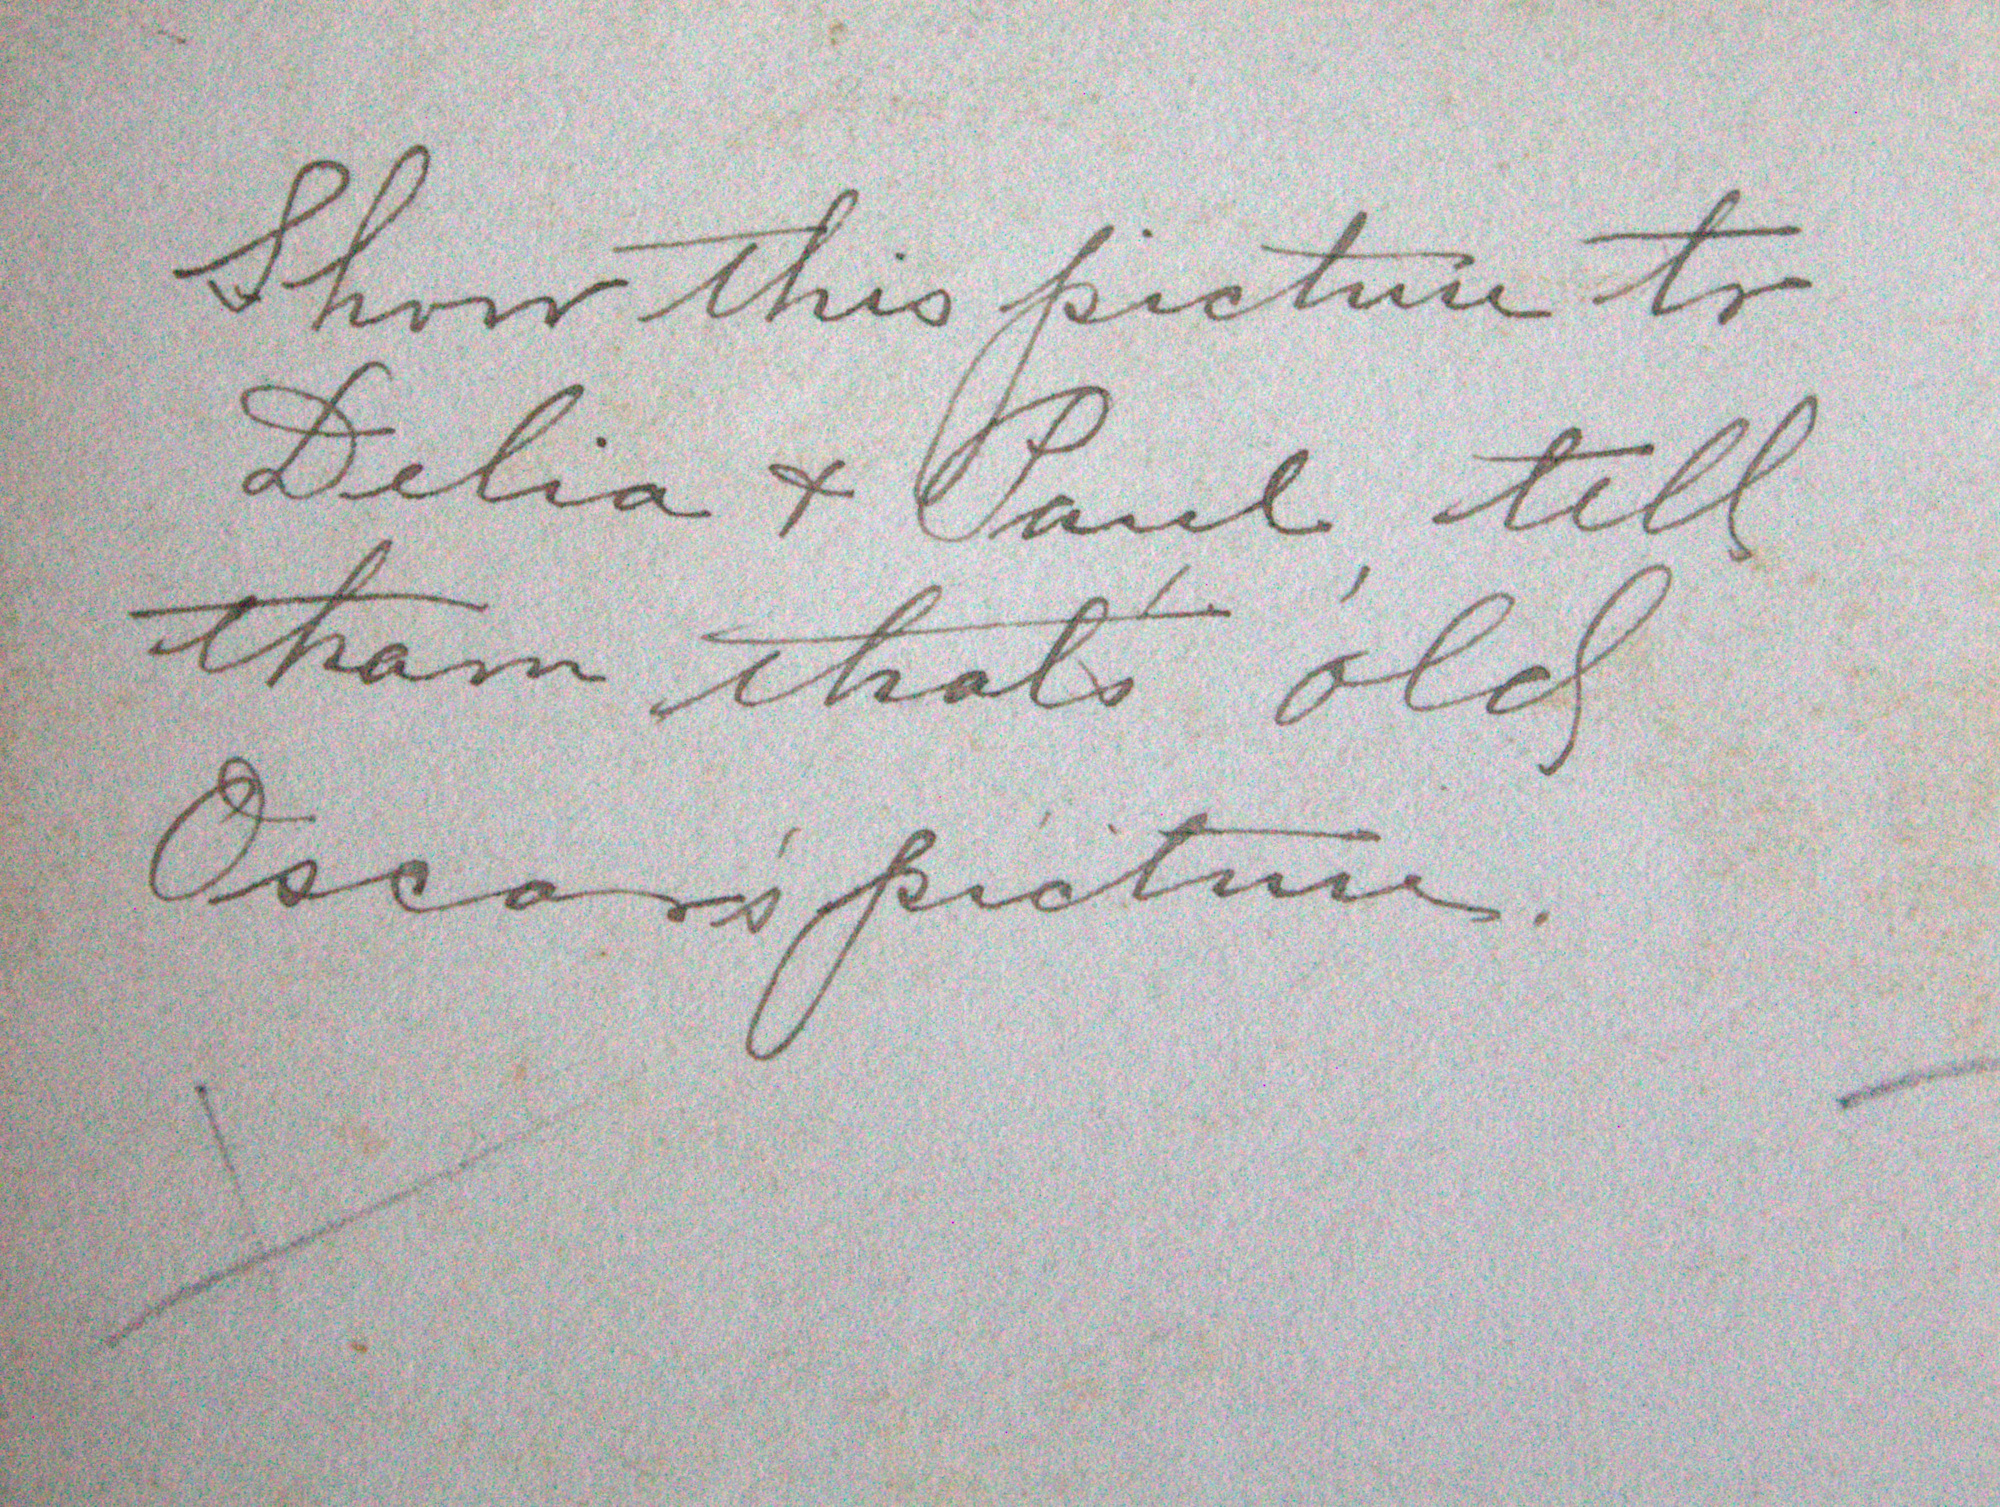 Show this picture to
Delia + Paul, tell
tham that's 'old
Oscar's picture.